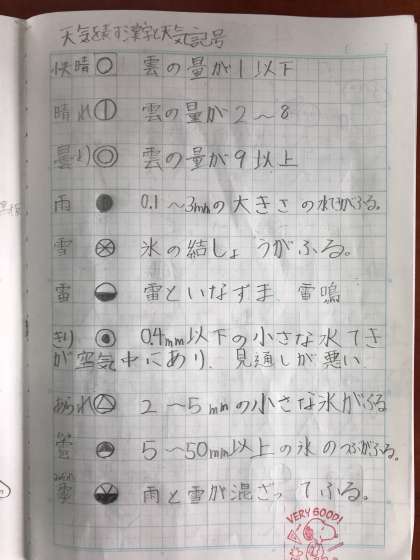 天気を表す漢字と天気記号
快晴 雲の量が1以下
晴れ 雲の量が2〜8
曇り 雲の量が9以上
雨 0.1〜3mmの大きさの水てきがふる。
雪 氷の結しょうがふる。
雷 雷といなずま、雷鳴
きり 0.4mm以下の小さな水てき
が空気中にあり、見通しが悪い
あられ 2〜5mmの小さな氷がふる
雹 5〜50mm以上の氷のつぶがふる。
みぞれ
霙 雨と雪が混ざってふる。
VERY GOOD!